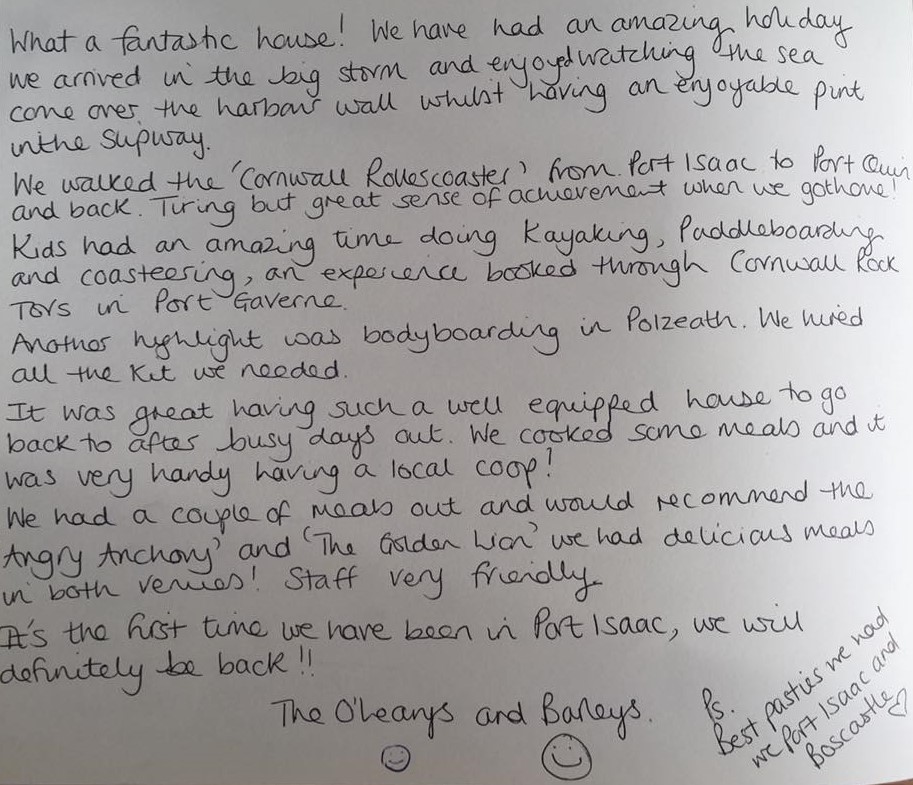 What a fantastic house! We have had an amazing holiday
we arrived in the big storm and enjoyed watching the sea
come over the harbour wall whilst having an enjoyable pint
in the Slipway.
We walked the 'Cornwall Rollercoaster' from Port Isaac to Port Quin
and back. Tiring but great sense of achievement when we got home!
Kids had an amazing time doing Kayaking, Paddleboarding
and coasteering, an experience booked through Cornwall Rock
Tors in Port Gaverne.
Another highlight was bodyboarding in Polzeath. We hired
all the Kit we needed.
It was great having such a well equipped house to go
back to after busy days out. We cooked some meals and it
was very handy having a local coop!
We had a couple of meals out and would recommend the
Angry Anchovy' and 'The Golden Lion' we had delicious meals
in both venues! Staff very friendly
It's the first time we have been in Port Isaac, we will
definitely be back!!
The O'Learys and Baileys.
Ps.
Best pasties we had
we Port Isaac and
Boscastle